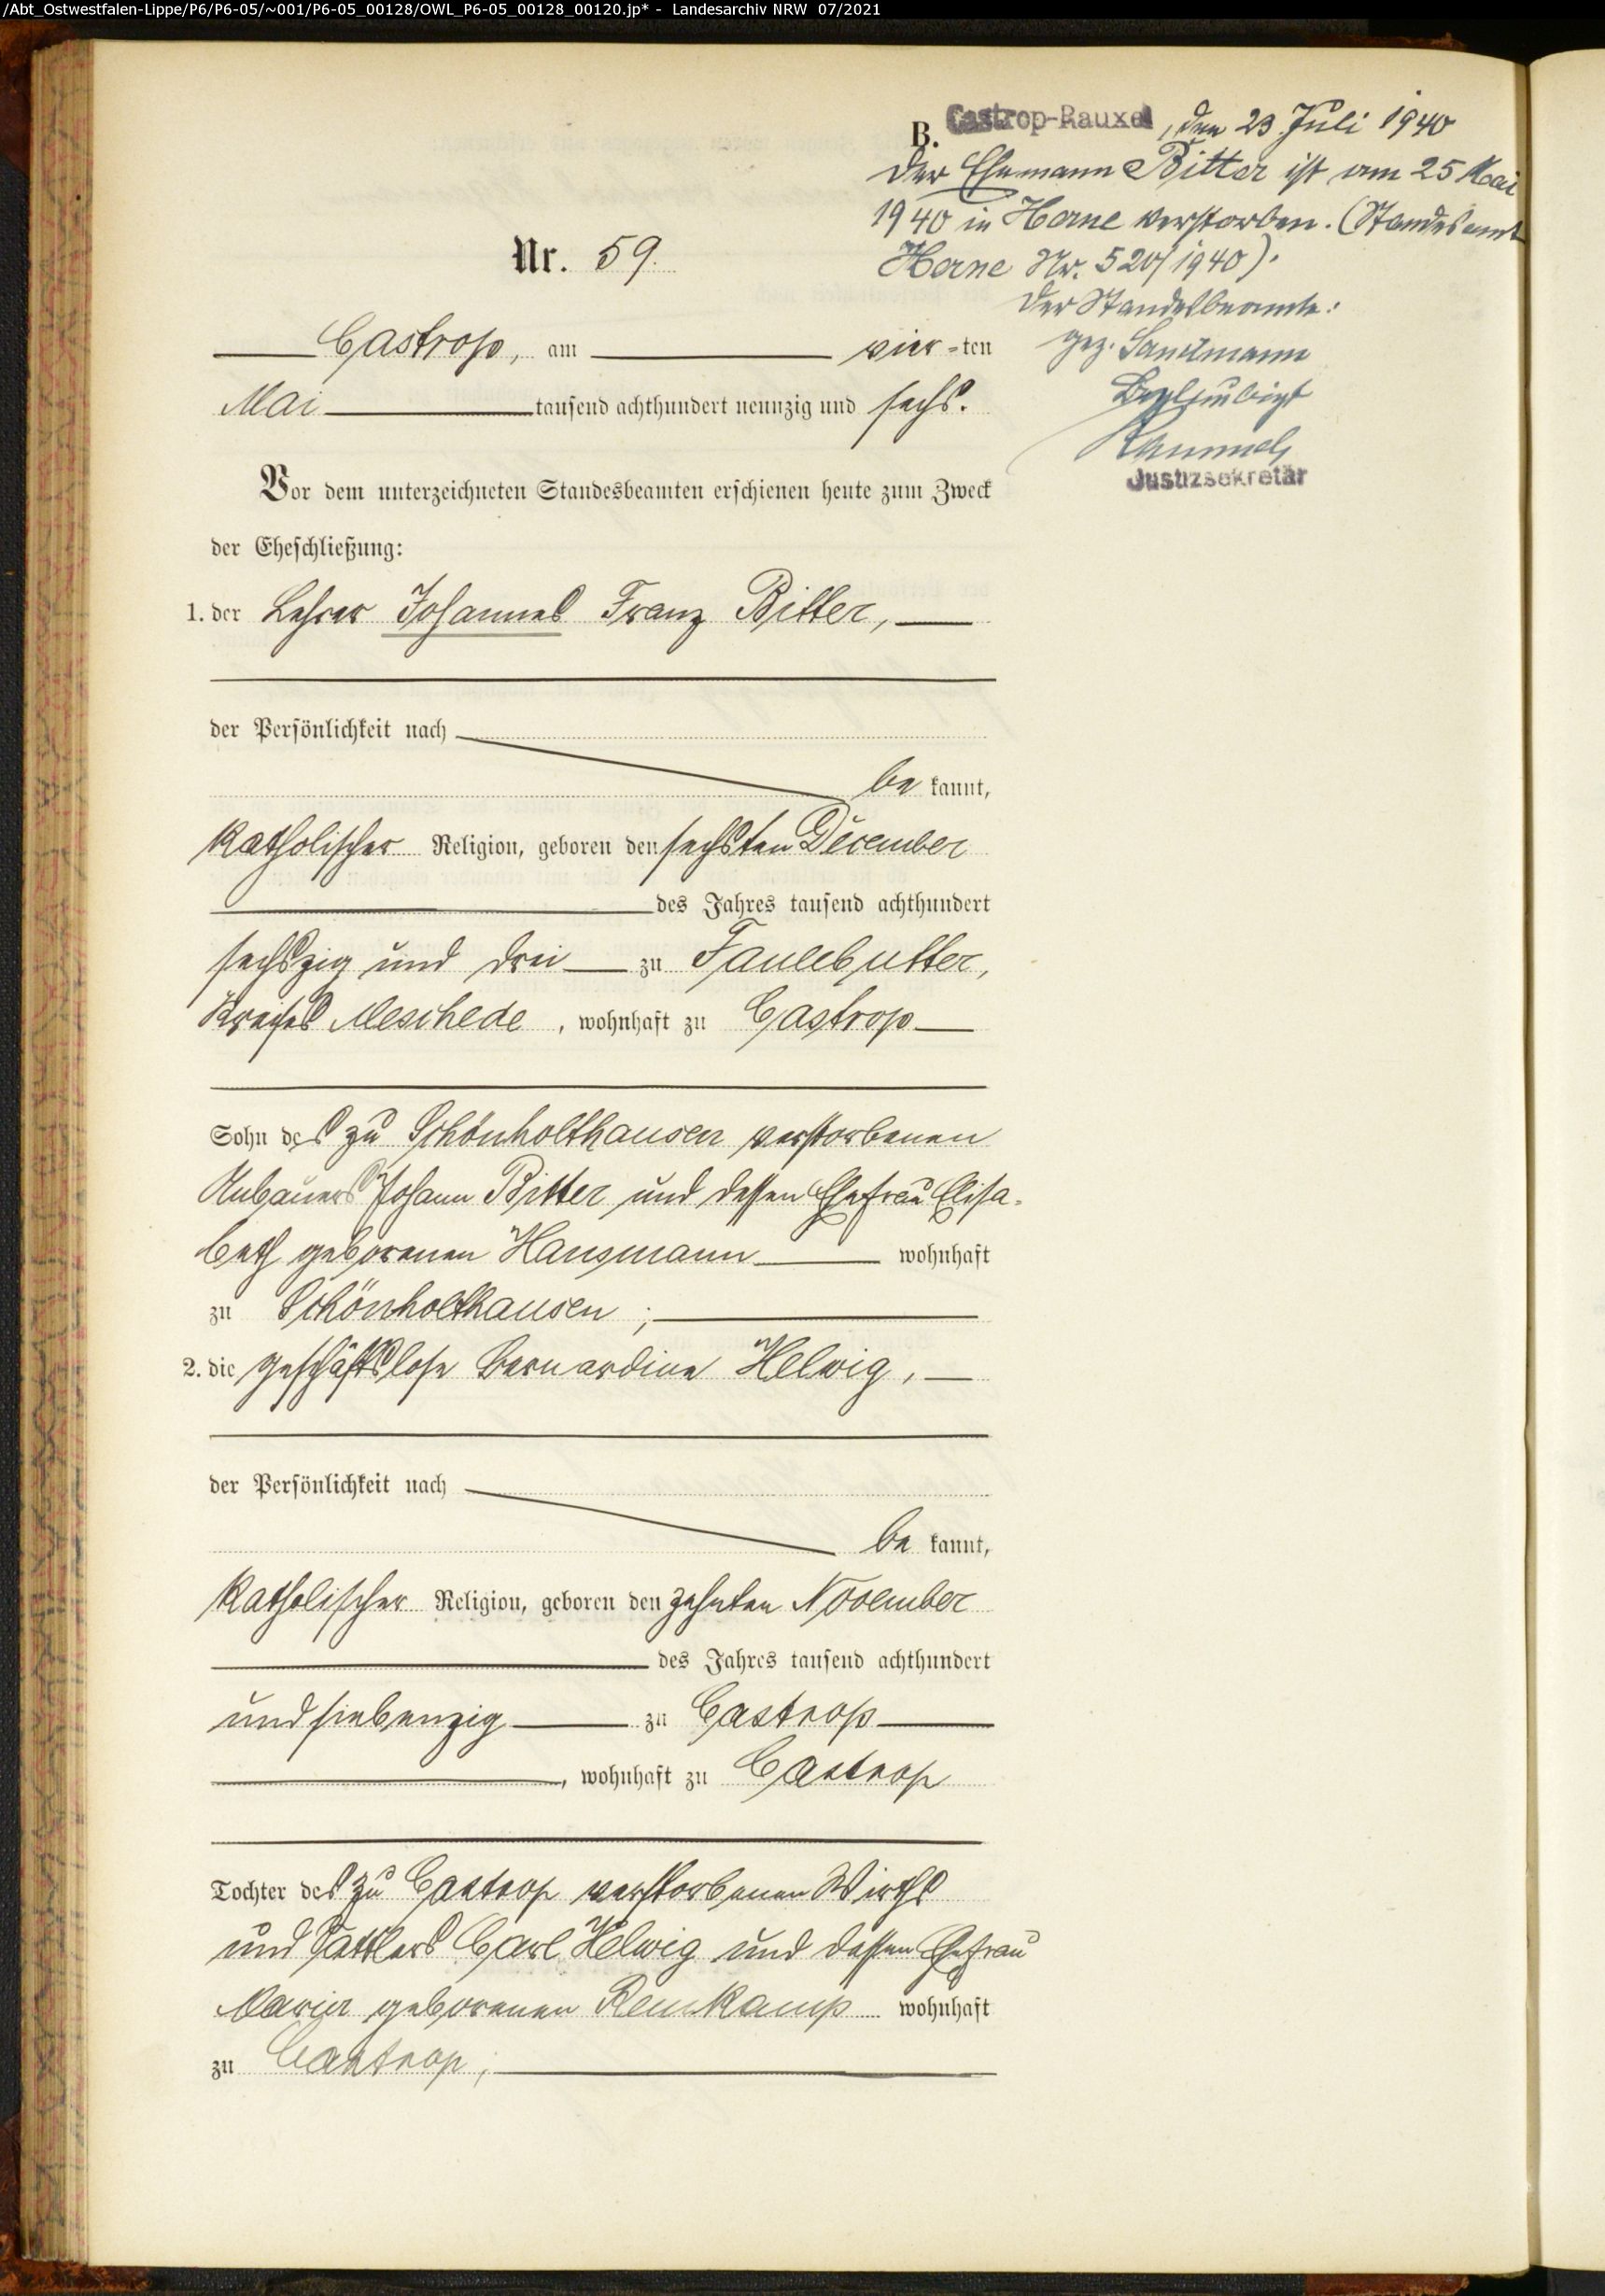 /Abt_Ostwestfalen-Lippe/P6/P6-05/~001/P6-05_00128/OWL_P6-05_00128_00120.jp* - Landesarchiv NRW 07/2021
B.
Castrop-Rauxel, den 23 Juli 1940
Der Ehemann Bitter ist am 25 Mai
1940 in Herne verstorben. (Standesamt
Herne Nr. 520/1940).
Der Standesbeamte:
gez. Sandmann
Beglaubigt
Justizsekretär
Nr. 59.
Castrop, am vier-ten
Mai tausend achthundert neunzig und sechs.
Vor dem unterzeichneten Standesbeamten erschienen heute zum Zweck
der Eheschließung:
1. der Lehrer Johannes Franz Bitter,
der Persönlichkeit nach
be kannt,
katholischer Religion, geboren den sechsten December
des Jahres tausend achthundert
sechszig und drei zu Faulebutter,
Kreises Meschede, wohnhaft zu Castrop
Sohn des zu Schönholthausen verstorbenen
Anbauers Johann Bitter und dessen Ehefrau Elisa-
beth geborenen Hansmann wohnhaft
zu Schönholthausen;
2. die geschäftslose Bernardine Helwig,
der Persönlichkeit nach
be kannt,
katholischer Religion, geboren den zehnten November
des Jahres tausend achthundert
und siebenzig zu Castrop
, wohnhaft zu Castrop
Tochter des zu Castrop verstorbenen Wirths
und Sattlers Carl Helwig und dessen Ehefrau
Maria geborenen Remkamp wohnhaft
zu Castrop;